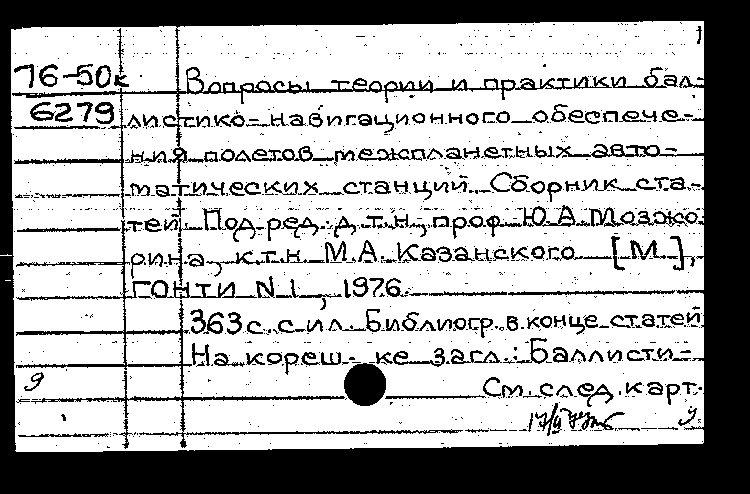 1
76-50к Вопросы теории и практики бал-
6279 листико-навигационного обеспече-
ния полетов межпланетных авто-
матических станций. Сборник ста-
тей. Под ред. д.т.н., проф. Ю.А. Мозжо
рина, к.т.н. М.А. Казанского [М.],
ГОНТИ N 1, 1976.
363 с. с ил. Библиогр. в конце статей
На кореш- ке загл.: Баллисти-
9 См. след. карт.
17/9